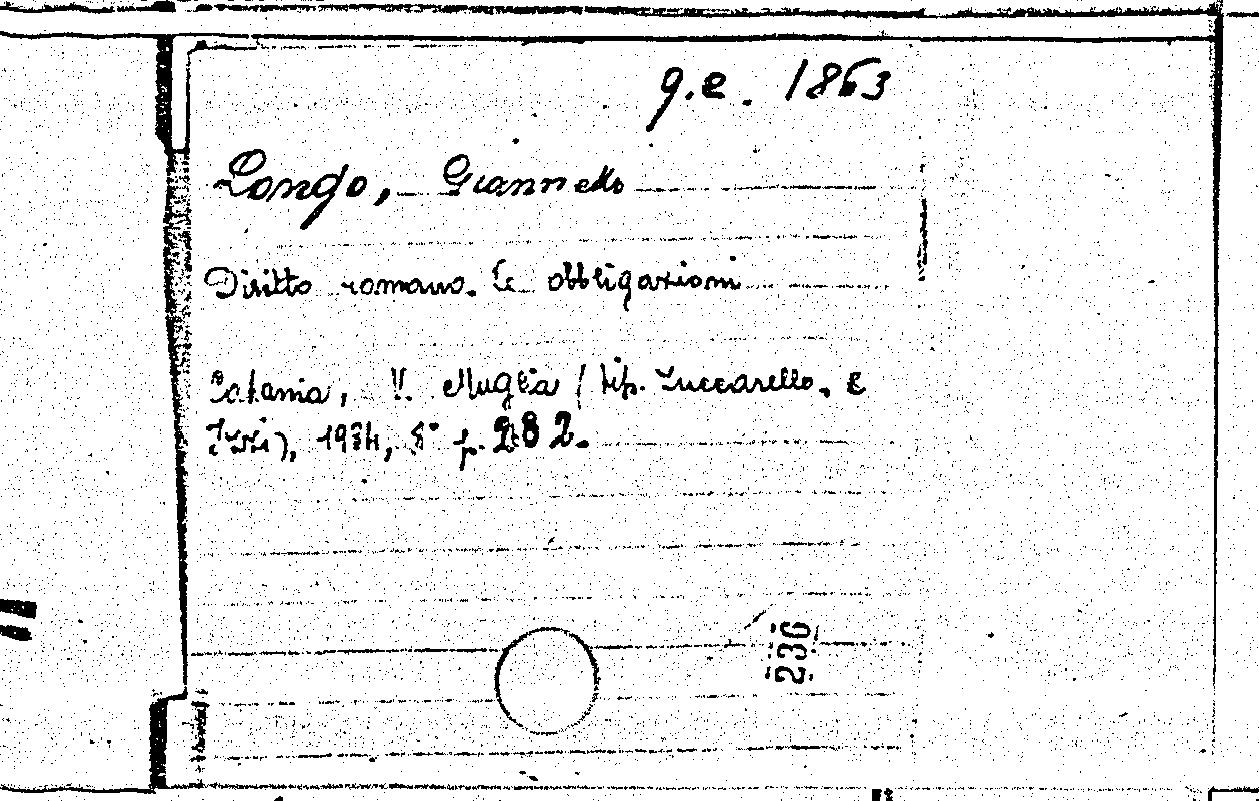 g.e. 1863
Longo, Giannetto
Diritto romano. Le obbligazioni
Catania, V. Muglia (tip. Zuccarello, E
Izzi), 1934, 8° p. 282.
236